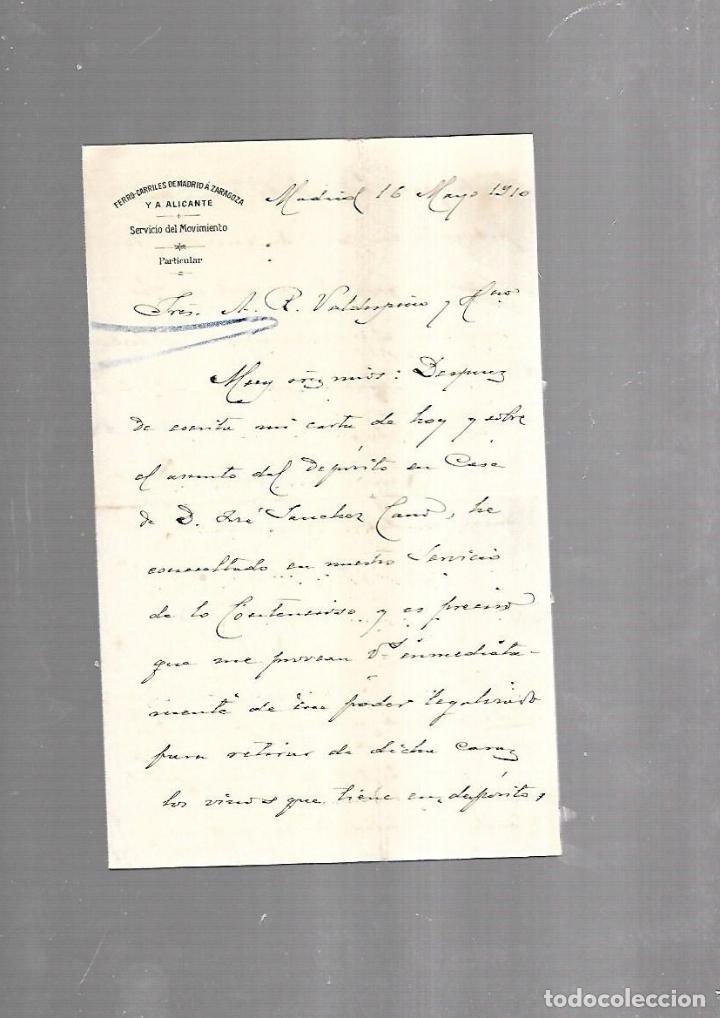 FERRO-CARRILES DE MADRID Á ZARAGOZA
Y A ALICANTE
Servicio del Movimiento
Particular
Madrid 16 Mayo 1910
Sres. A. R. Valdespino y Hno
Muy sres mios: Despues
de escrita mi carta de hoy y sobre
el asunto del depósito en Casa
de D. José Sanchez Cano, he
consultado en nuestro Servicio
de lo Contencioso y es preciso
que me provean Vs inmediata-
mente de un poder legalizado
para retirar de dicha casa
los vinos que tiene en depósito,
todocoleccion
todocoleccion.net